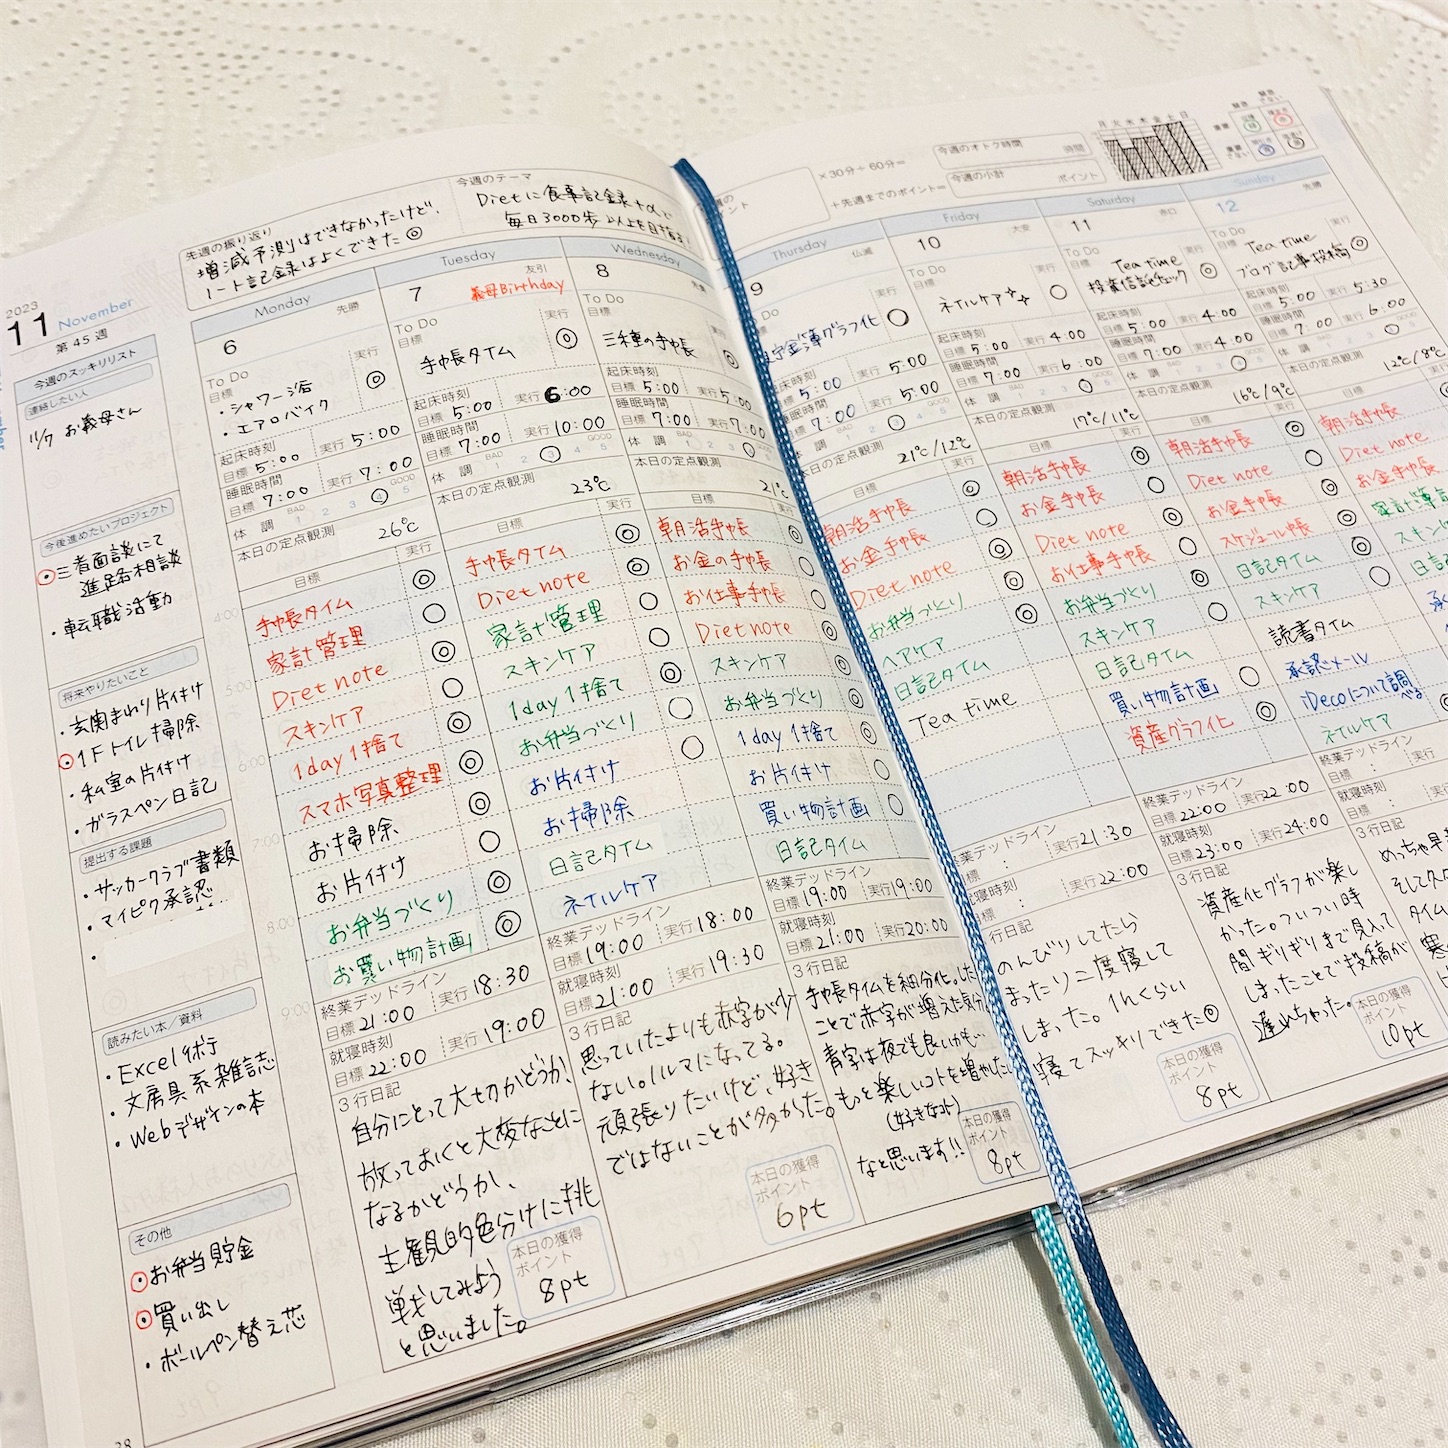 2023
11 November
第45週
今週のスッキリリスト
連絡したい人
11/7 お義母さん
今後進めたいプロジェクト
・三者面談にて
進路相談
・転職活動
将来やりたいこと
・玄関まわり片付け
・1Fトイレ掃除
・私室の片付け
・ガラスペン日記
提出する課題
・サッカークラブ書類
・マイピク承認
・
読みたい本／資料
・Excel
・文房具系雑誌
・Webデザインの本
その他
・お弁当貯金
・買い出し
・ボールペン替え芯
先週の振り返り
増減予測はできなかったけど、
ノート記録はよくできた◎
今週のテーマ
Dietに食事記録+αで
毎日3000歩以上を目指す!
×30分÷60分=
今週のオトク時間
時間
+先週までのポイント=
今週の小計
ポイント
月火水木金土日
Monday
6
先勝
To Do
目標
実行
・シャワー浴 ◎
・エアロバイク
起床時刻
目標 5:00 実行 5:00
睡眠時間
目標 7:00 実行 7:00
体調 BAD 1 2 3 4 5 GOOD
本日の定点観測
26℃
目標 実行
手帳タイム ◎
家計管理 ○
Diet note ◎
スキンケア ○
1day1捨て ◎
スマホ写真整理 ◎
お掃除 ◎
お片付け ○
お弁当づくり ◎
お買い物計画 ◎
終業デッドライン
目標 21:00 実行 18:30
就寝時刻
目標 22:00 実行 19:00
3行日記
自分にとって大切かどうか、
放っておくと大変なことに
なるかどうか、
主観的色分けに挑
戦してみよう
と思いました。
本日の獲得
ポイント
8pt
Tuesday
7
友引
義母Birthday
To Do
目標
実行
手帳タイム ◎
起床時刻
目標 5:00 実行 6:00
睡眠時間
目標 7:00 実行 10:00
体調 BAD 1 2 3 4 5 GOOD
本日の定点観測
23℃
目標 実行
手帳タイム ◎
Diet note ◎
家計管理 ○
スキンケア ○
1day1捨て ◎
お弁当づくり ○
お片付け ○
お掃除
日記タイム
ネイルケア
終業デッドライン
目標 19:00 実行 18:00
就寝時刻
目標 21:00 実行 19:30
3行日記
思っていたよりも赤字が少
ない。ノルマになってる。
頑張りたいけど、好き
ではないことが多かった。
本日の獲得
ポイント
6pt
Wednesday
8
To Do
目標
三種の手帳 ◎
起床時刻
目標 5:00 実行 5:00
睡眠時間
目標 7:00 実行 7:00
体調 BAD 1 2 3
本日の定点観測
21℃
目標 実行
朝活手帳 ◎
お金の手帳 ○
お仕事手帳 ○
Diet note ◎
スキンケア ◎
お弁当づくり ◎
1day1捨て ◎
お片付け ○
買い物計画 ○
日記タイム
終業デッドライン
目標 19:00 実行 19:00
就寝時刻
目標 21:00 実行 20:00
3行日記
手帳タイムを細分化した
ことで赤字が増えた気分
青字は夜でも良いかも…
もっと楽しいコトを増やしたい
(好きなコト)
なと思います!!
本日の獲得
ポイント
8pt
Thursday
9
仏滅
実行
貯金簿グラフ化 ○
5:00 5:00
睡眠時間
7:00 実行 5:00
体調 BAD 1 2 3 4 5 GOOD
本日の定点観測
21℃/12℃
目標 実行
朝活手帳 ◎
お金手帳 ○
Diet note ◎
お弁当づくり ◎
ヘアケア ◎
日記タイム
Tea time
終業デッドライン
: 実行 21:30
就寝時刻
目標 : 実行 22:00
行日記
のんびりしてたら
まったり二度寝して
しまった。1hくらい
寝てスッキリできた◎
本日の獲得
ポイント
8pt
Friday
10
大安
To Do
目標
実行
ネイルケア☆☆ ○
起床時刻
目標 5:00 実行 4:00
睡眠時間
目標 7:00 実行 6:00
体調 BAD 1 2 3 4 5 GOOD
本日の定点観測
17℃/11℃
目標 実行
朝活手帳 ◎
お金手帳 ○
Diet note ◎
お仕事手帳 ○
お弁当づくり ◎
スキンケア ○
日記タイム
買い物計画 ○
資産グラフ化 ◎
終業デッドライン
目標 22:00 実行 22:00
就寝時刻
目標 23:00 実行 24:00
3行日記
資産化グラフが楽し
かった。ついつい時
間ギリギリまで見入って
しまったことで投稿が
遅れちゃった。
本日の獲得
ポイント
10pt
Saturday
11
赤口
To Do
目標
実行
Tea time
投資信託チェック ◎
起床時刻
目標 5:00 実行 4:00
睡眠時間
目標 7:00 実行 4:00
体調
本日の定点観測
16℃/9℃
目標 実行
朝活手帳 ◎
Diet note ○
お金手帳 ◎
スケジュール帳 ○
日記タイム ◎
スキンケア ○
読書タイム
承認メール
iDecoについて調べる
ネイルケア
終業デッドライン
目標 :
就寝時刻
目標 :
3行日記
Sunday
12
先勝
To Do
目標
実行
Tea time
ブログ記事投稿 ◎
起床時刻
目標 5:00 実行 5:30
睡眠時間
目標 7:00 実行 6:00
本日の定点観測
12℃/8℃
目標
朝活手帳
Diet note
お金手帳